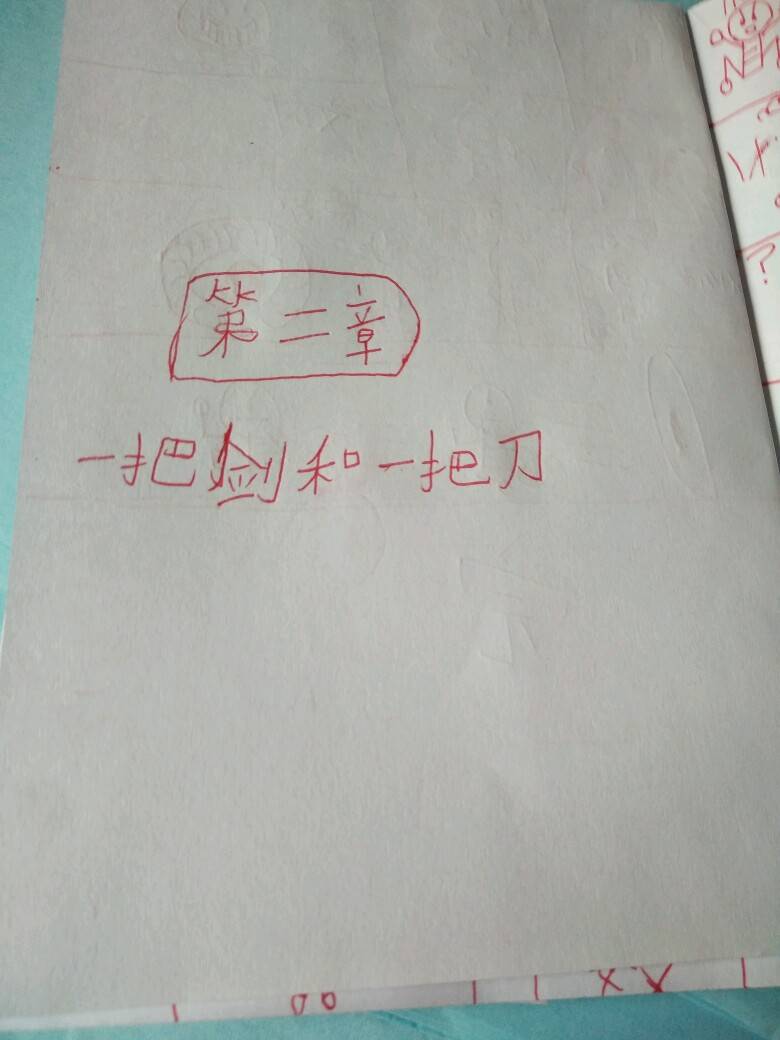 第二章
一把剑和一把刀
?